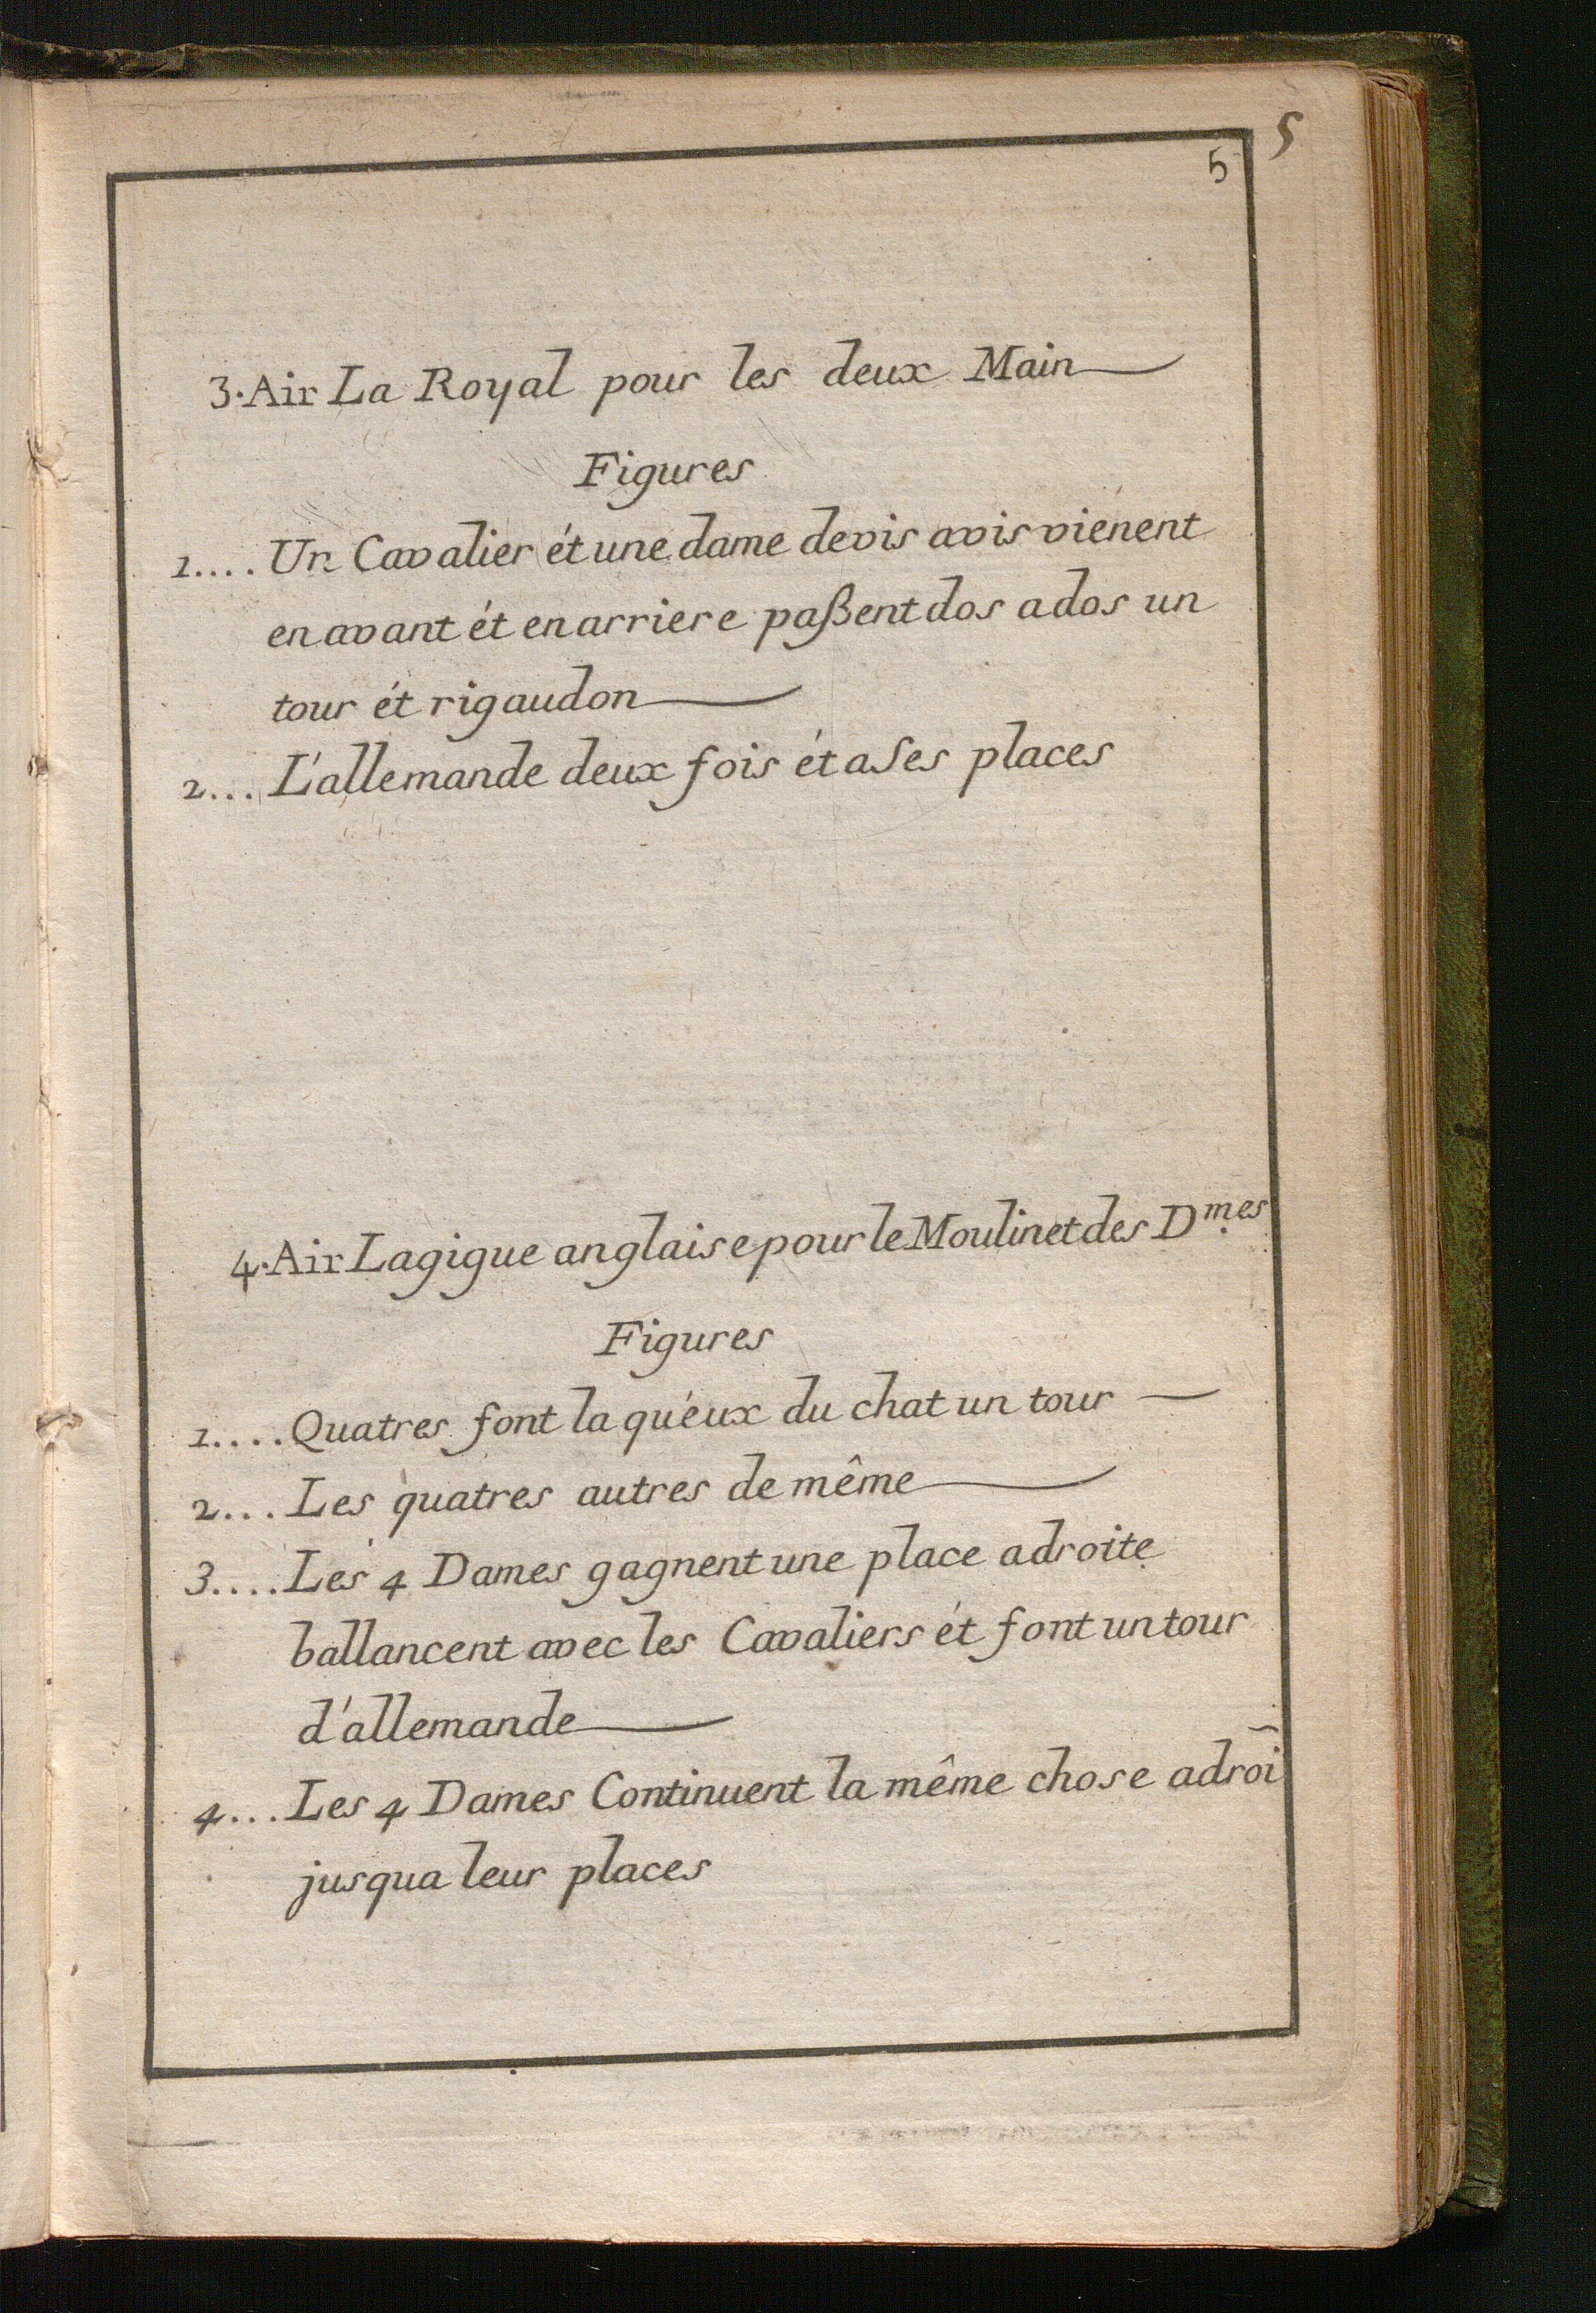 5
5
3. Air La Royal pour les deux Main
Figures
1.... Un Cavalier ét une dame devis avis vienent
en avant ét en arriere paßent dos a dos un
tour ét rigaudon
2... L'allemande deux fois ét a Ses places
4. Air La gigue anglaise pour le Moulinet des Dmes
Figures
1.... Quatres font la quéux du chat un tour
2... Les quatres autres de même
3.... Les 4 Dames gagnent une place adroite
ballancent avec les Cavaliers ét font un tour
d'allemande
4... Les 4 Dames Continuent la même chose adroi
jusqua leur places